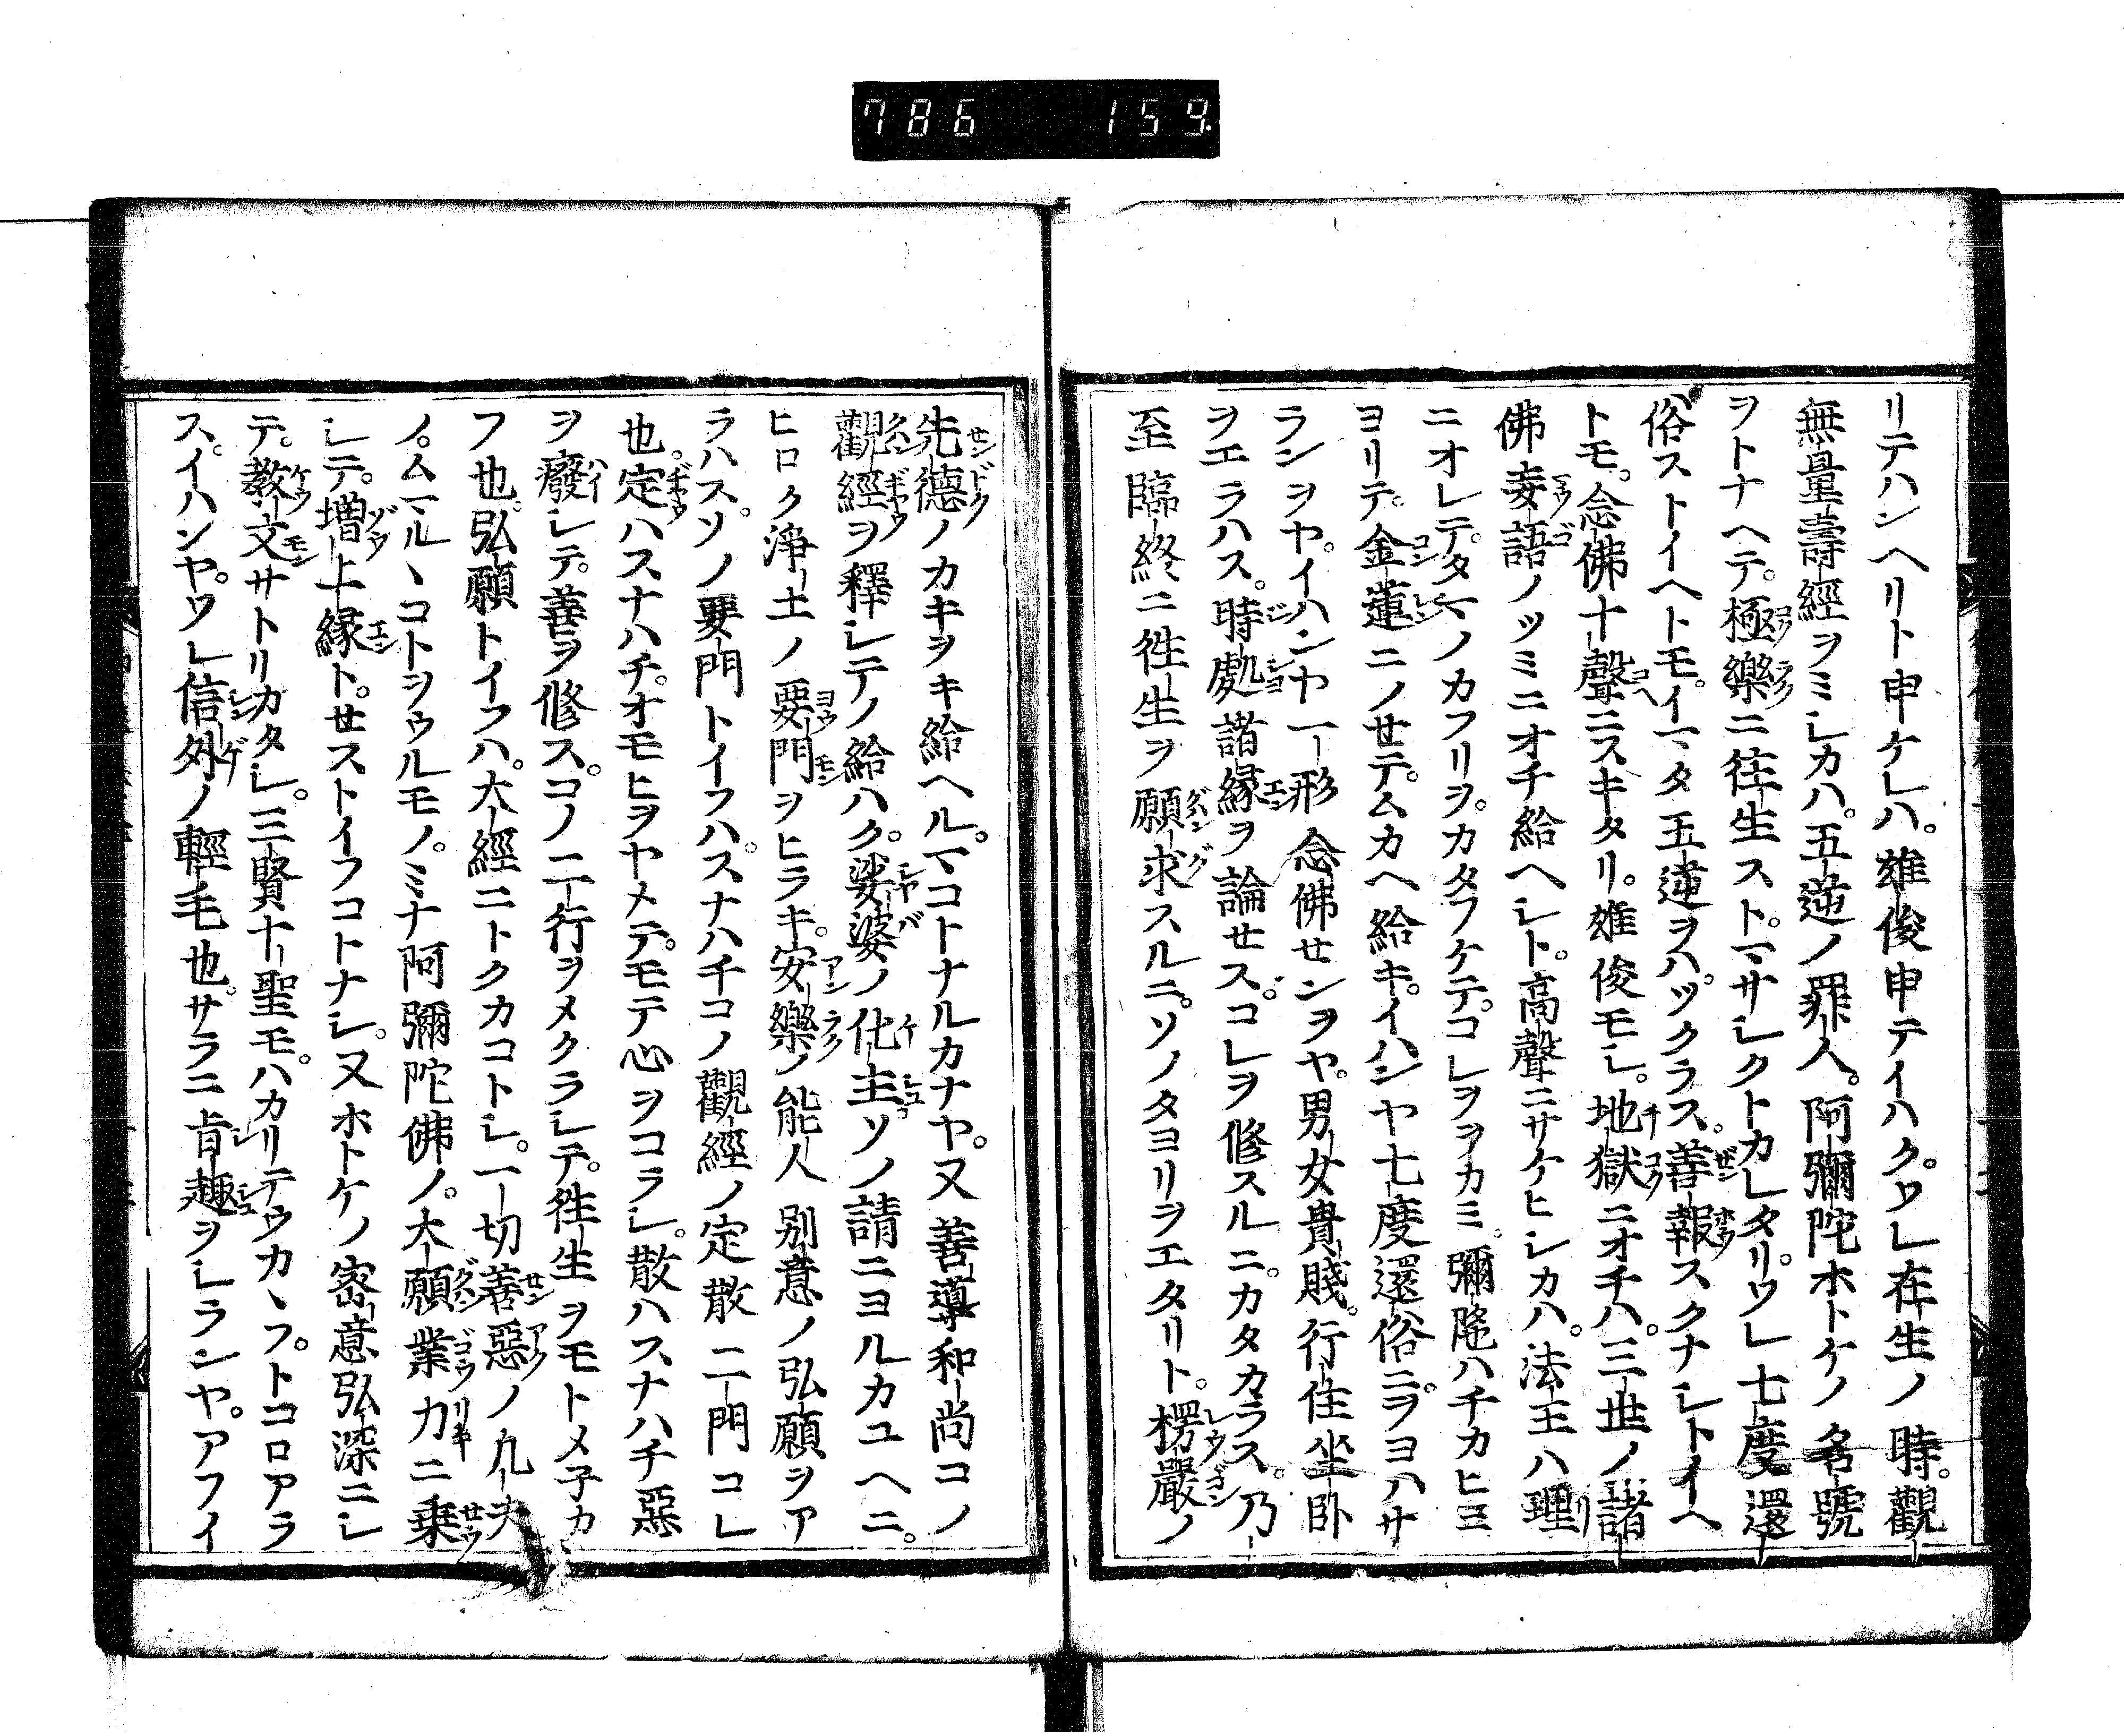 786 159
リテハンヘリト申ケレハ。雄俊申テイハク。ワレ在生ノ時。觀
無量壽經ヲミシカハ。五逆ノ罪人。阿彌陀ホトケノ名號
ヲトナヘテ。極樂ニ往生スト。マサシクトカレタリ。ワレ七度還
俗ストイヘトモ。イマタ五逆ヲハ。ツクラス。善報スクナシトイヘ
トモ。念佛十聲ニスキタリ。雄俊モシ。地獄ニオチハ。三世ノ諸
佛妄語ノツミニオチ給ヘシト。高聲ニサケヒシカハ。法王ハ理
ニオレテ。タマノカフリヲ。カタフケテ。コレヲヲカミ。彌陀ハチカヒニ
ヨリテ。金蓮ニノセテムカヘ給キ。イハンヤ七度還俗ニ。ヲヨハサ
ランヲヤ。イハンヤ一形念佛センヲヤ。男女貴賤。行住坐臥
ヲエラハス。時處諸縁ヲ論セス。コレヲ修スルニ。カタカラス。乃
至臨終ニ往生ヲ願求スルニ。ソノタヨリヲエタリト。楞嚴ノ
先德ノカキヲキ給ヘル。マコトナルカナヤ。又善導和尚コノ
觀經ヲ釋シテノ給ハク。娑婆ノ化主ソノ請ニヨルカユヘニ。
ヒロク淨土ノ要門ヲヒラキ。安樂ノ能人別意ノ弘願ヲア
ラハス。ソノ要門トイフハ。スナハチコノ觀經ノ定散二門コレ
也。定ハスナハチ。オモヒヲヤメテ。モテ心ヲコラシ。散ハスナハチ惡
ヲ癈シテ。善ヲ修ス。コノ二行ヲメクラシテ。往生ヲモトメ子カ
フ也。弘願トイフハ。大經ニトクカコトシ。一切善惡ノ凡夫
ノ。ムマルヽコトヲウルモノ。ミナ阿彌陀佛ノ。大願業力ニ乗
シテ。増上縁ト。セストイフコトナシ。又ホトケノ密意弘深ニシ
テ。教文サトリカタシ。三賢十聖モ。ハカリテウカヽフ。トコロアラ
ス。イハンヤ。ワレ信外ノ輕毛也。サラニ旨趣ヲシランヤ。アフイ